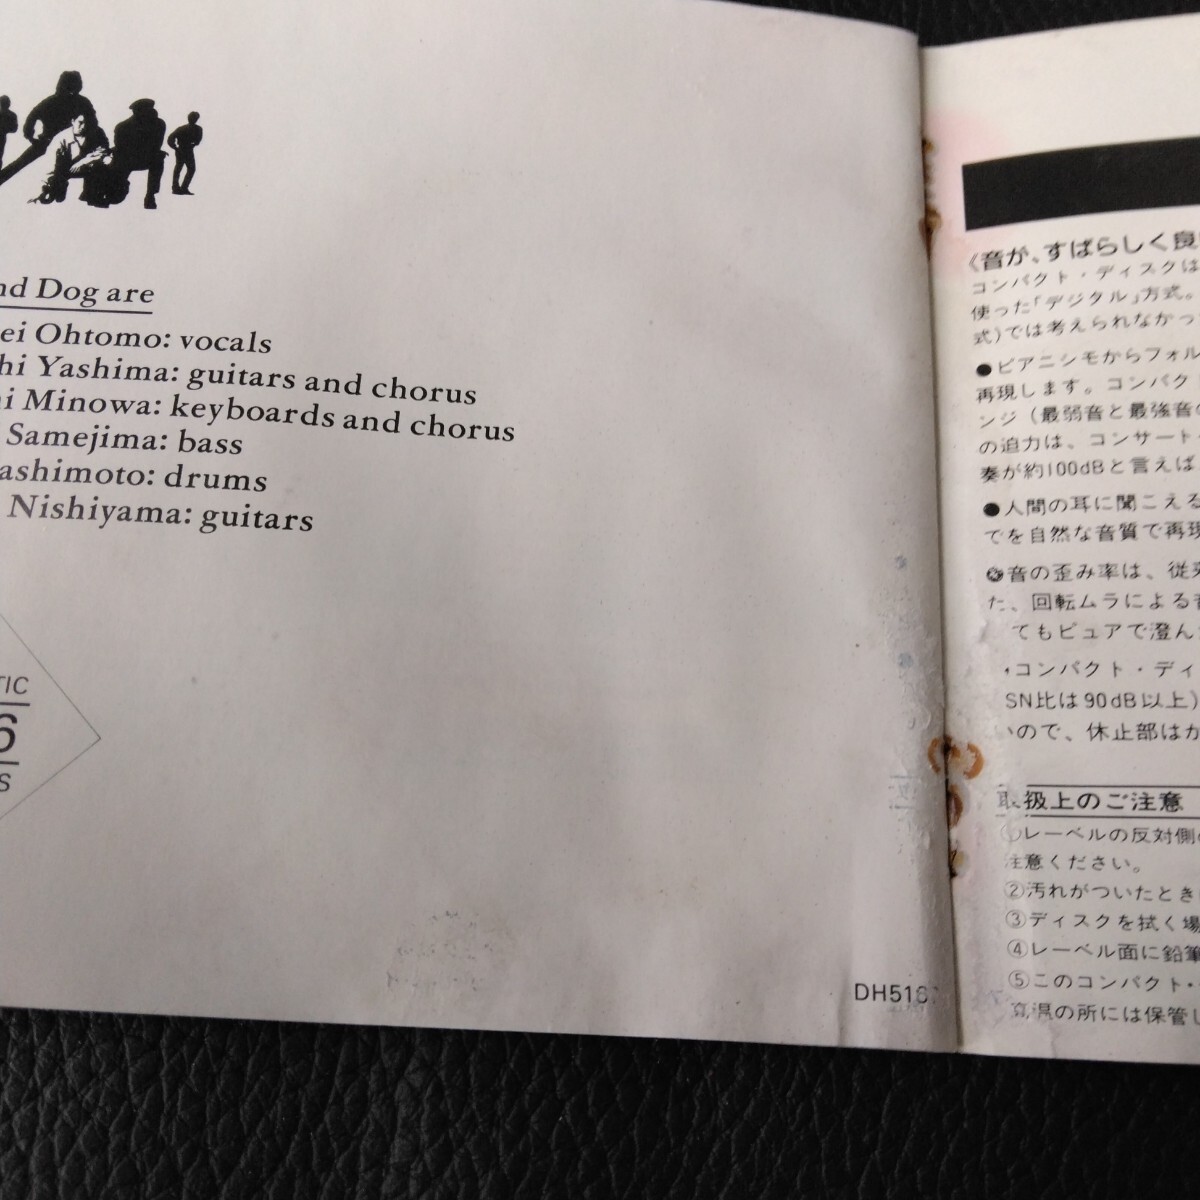 nd Dog are
ei Ohtomo: vocals
hi Yashima: guitars and chorus
i Minowa: keyboards and chorus
Samejima: bass
ashimoto: drums
Nishiyama: guitars
TIC
6
S
DH516
《音が、すばらしく良
コンパクト・ディスクは
使った「デジタル」方式。
式)では考えられなかっ
●ピアニシモからフォル
再現します。コンパク
ンジ（最弱音と最強音の
の迫力は、コンサート・
奏が約100dBと言えば
●人間の耳に聞こえる
でを自然な音質で再現
音の歪み率は、従来
た、回転ムラによる音
てもピュアで澄ん
・コンパクト・ディ
SN比は90dB以上)
いので、休止部はか
取扱上のご注意
①レーベルの反対側の
注意ください。
②汚れがついたとき
③ディスクを拭く場
④レーベル面に鉛筆
⑤このコンパクト・
高温の所には保管し